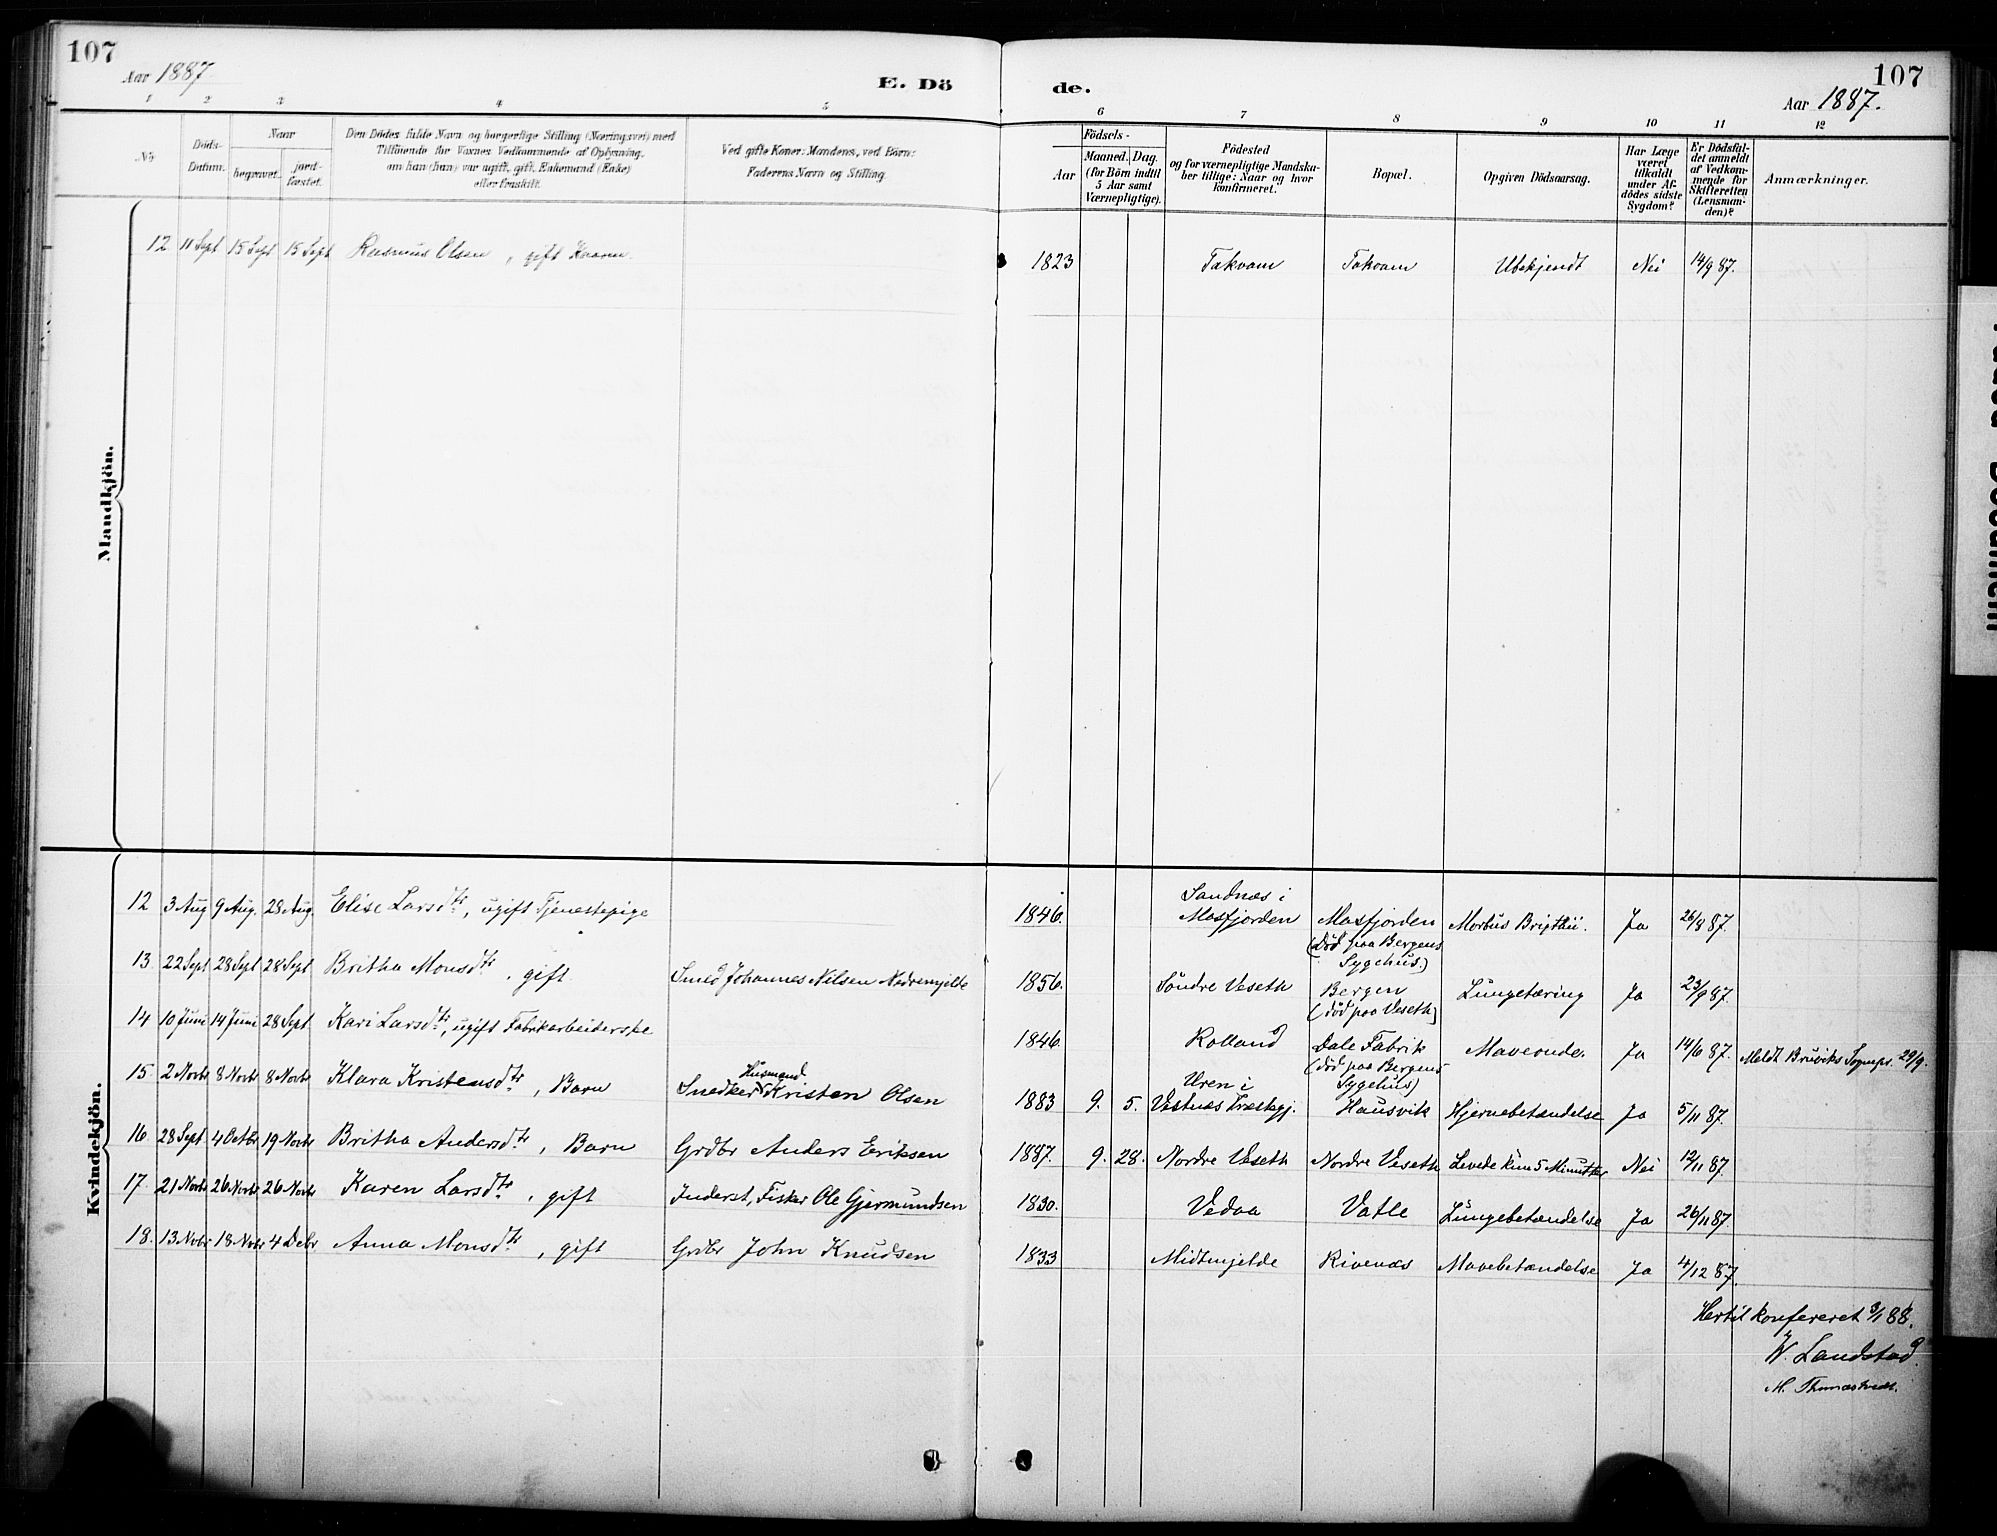 107
Aar 1887.
E. Dö
de.
107
Aar 1887.
1 2 3 4 5 6 7 8 9 10 11 12
No
Döds-
Datum.
Naar
begravet.
jord-
fæstet.
Den Dödes fulde Navn og borgerlige Stilling (Næringsvei) med
Tilföiende for Voxnes Vedkommende af Oplysning,
om han (hun) var ugift, gift, Enkemand (Enke)
eller fraskilt.
Ved gifte Koner: Mandens, ved Börn:
Faderens Navn og Stilling.
Födsels-
Aar
Maaned. Dag.
(for Börn indtil
5 Aar samt
Værnepligtige).
Födested
og for værnepligtige Mandska-
ber tillige: Naar og hvor
konfirmeret.
Bopæl.
Opgiven Dödsaarsag.
Har Læge
været
tilkaldt
under Af-
dödes sidste
Sygdom?
Er Dödsfal-
det anmeldt
af Vedkom-
mende for
Skifteretten
(Lensman-
den)?
Anmærkninger.
Mandkjön.
12 11 Sept 15 Sept 15 Sept Rasmus Olsen, gift 1823 Takvam Takvam Ubekjendt Nei 14/9 87.
Kvindekjön.
12 3 Aug 9 Aug. 28 Aug. Elise Larsdtr, ugift Tjenestepige 1846. Sandnæs i Masfjorden Masfjorden (död paa Bergens Sygehus.) Morbus Brigthii. Ja 26/8 87.
13 22 Sept 28 Sept 28 Sept Britha Monsdtr, gift Smed Johannes Nilsen Nedremjelde 1856. Söndre Veseth Bergen (död paa Veseth) Lungetæring Ja 23/9 87.
14 10 Juni 14 Juni 28 Sept Kari Larsdtr, ugift Fabrikarbeiderske 1846. Rolland Dale Fabrik (död paa Bergens Sygehus) Maveonde. Ja 14/6 87. Meldt Bruviks Sognepr. 29/9.
15. 2 Novbr 8 Novbr 8 Novbr Klara Kristensdtr, Barn Snedker Husmand Kristen Olsen 1883 9. 5. Uren i Vestnæs Præstegj. Hausvik Hjernebetændelse Ja 5/11 87.
16. 28 Sept. 4 Octbr 19 Novbr Britha Andersdtr, Barn Grdbr Anders Eriksen 1887. 9. 28. Nordre Veseth Nordre Veseth Levede kun 5 Minutter Nei 12/11 87.
17. 21 Novbr 26 Novbr 26 Novbr Karen Larsdtr, gift Inderst, Fisker Ole Gjermundsen 1830. Vedaa Vatle Lungebetændelse Ja 26/11 87.
18. 13 Novbr 18 Novbr 4 Debr Anna Monsdtr, gift Grdbr John Knudsen 1833 Midtmjelde Rivenæs Mavebetændelse Ja 4/12 87.
Hertil konfereret 3/1 88.
W. Landstad
M. Thomastvedt.